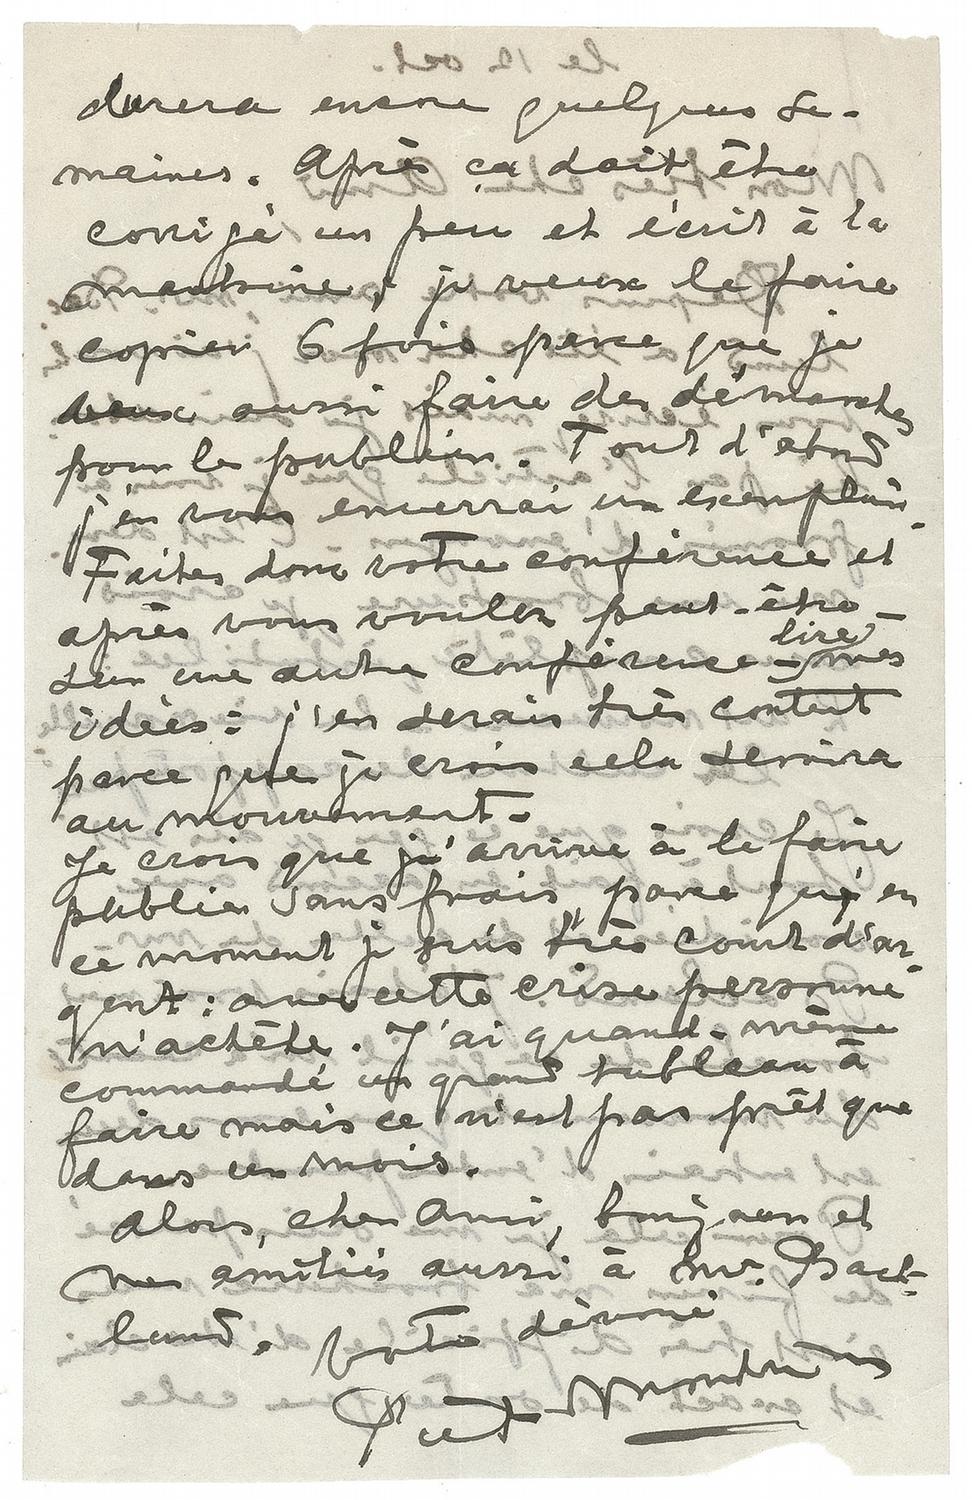 durera encore quelques se-
maines. Après ça doit être
corrigé un peu et écrit à la
machine, je veux le faire
copier 6 fois parce que je
veux aussi faire des démarches
pour le publier. Tout d'abord
j'en vous enverrai un exemplair.
Faites donc votre conférence et
après vous voulez peut-être -
dan une autre conférence - lire mes
idées: j'en serais très content
parce que je crois cela servira
au mouvement.
Je crois que j'arrive à le faire
publier sans frais, parce qu'en
ce moment je suis très court d'ar-
gent: avec cette crise personne
n'achète. J'ai quand-même
commandé un grand tableau à
faire mais ce n'est pas prêt que
dans un mois.
Alors, cher Ami, bonjour et
mes amitiés aussi à mr.
Votre dévoué
Piet Mondrian
le 12 oct.